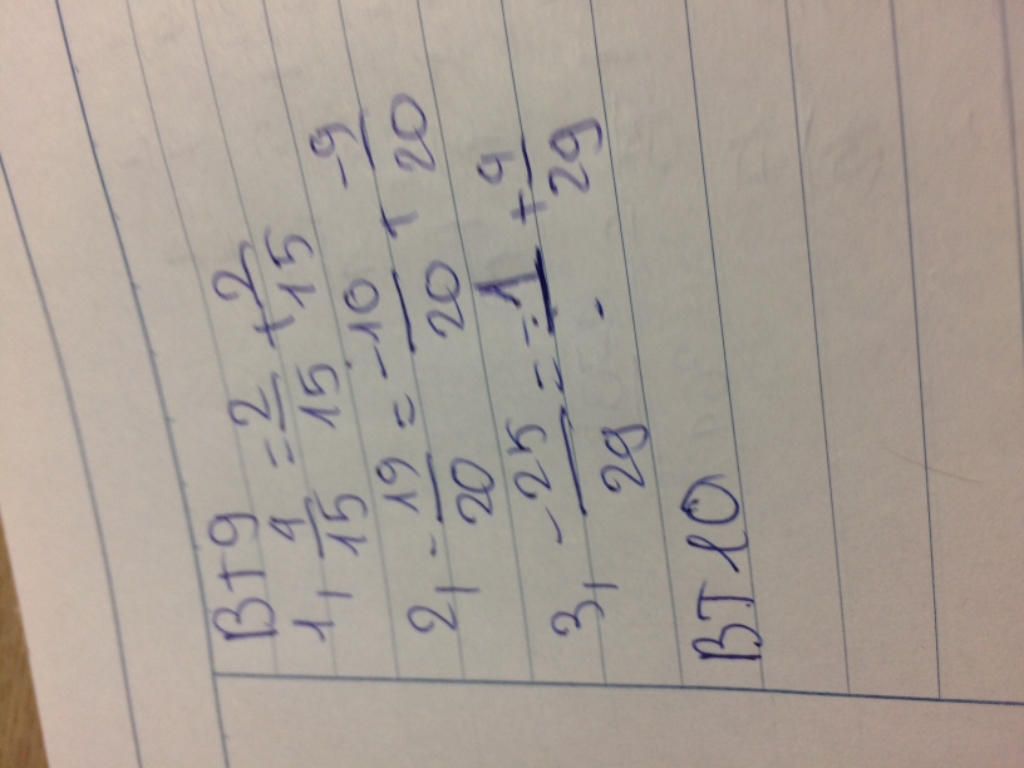 BT9
1, 4/15 = 2/15 + 2/15
2, -19/20 = -10/20 + -9/20
3, -25/29 = -1/. + 9/29
BT 10